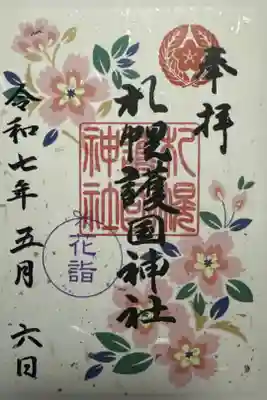 奉拝
札幌護国神社
札幌護国神社
花詣
令和七年五月六日